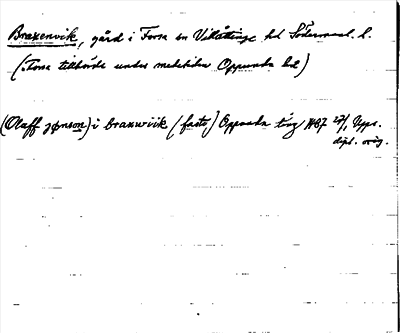 Braxenvik, gård i Forsa sn Villåttinge hd Södermanl. l.
(Forsa tillhörde under medeltiden Oppunda hd)
(Olaff jønson) i braxwiik (faste,) Oppunda ting 1487 27/1, Upps.
dipl. orig.